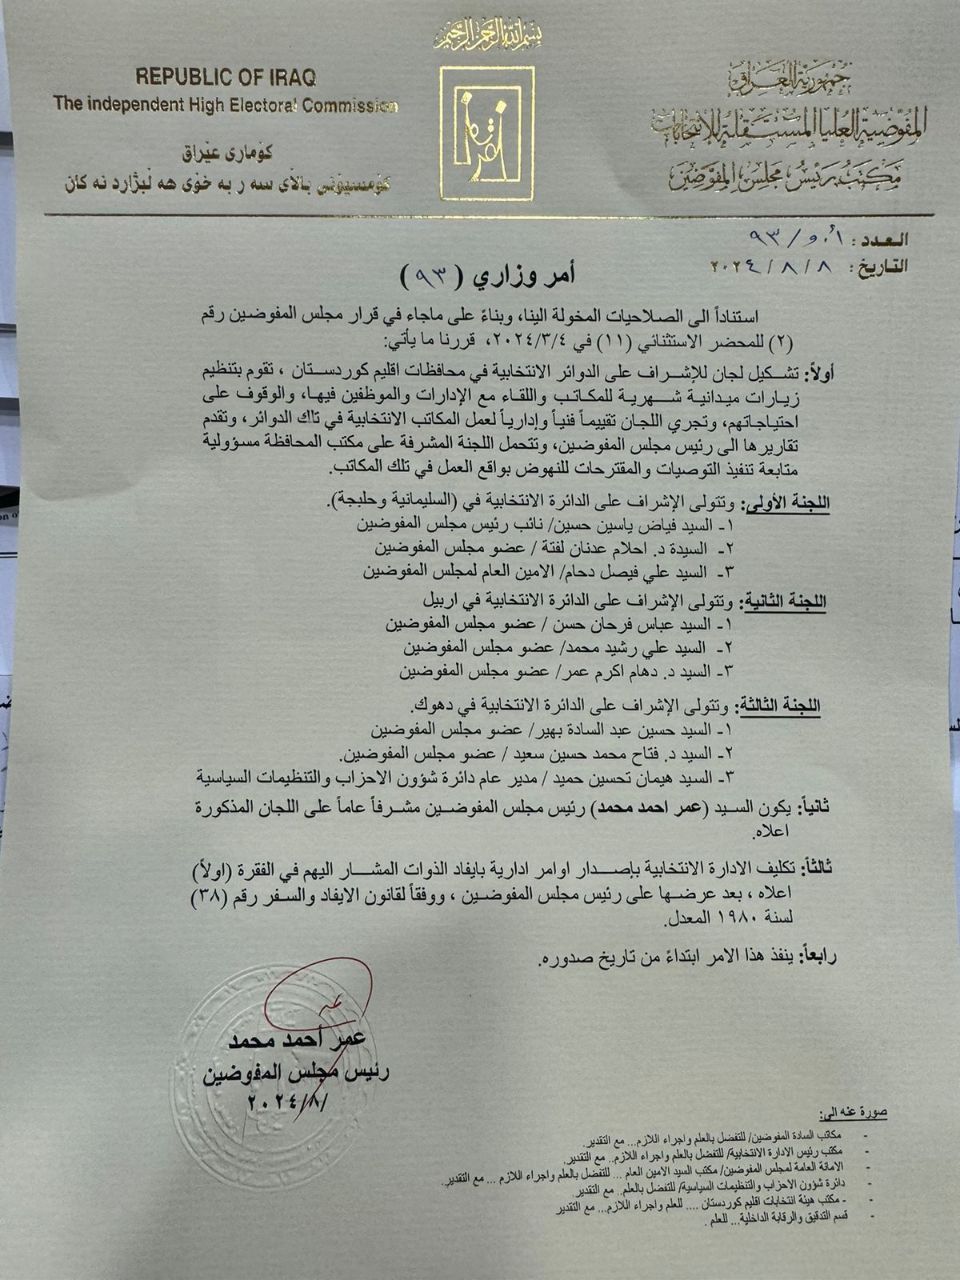 بسم الله الرحمن الرحيم
REPUBLIC OF IRAQ
The independent High Electoral Commission
كۆماری عێراق
كۆمسيۆنی بالآی سه ر به خۆی هه لبژارد نه كان
جمهورية العراق
المفوضية العليا المستقلة للانتخابات
مكتب رئيس مجلس المفوضين
العدد : أ.و/ ٩٣
التاريخ: ٨ / ٨ / ٢٠٢٤
أمر وزاري ( ٩٣ )
استناداً الى الصلاحيات المخولة الينا، وبناءً على ماجاء في قرار مجلس المفوضين رقم
(٢) للمحضر الاستثنائي (١١) في ٢٠٢٤/٣/٤، قررنا ما يأتي:
أولاً: تشكيل لجان للإشراف على الدوائر الانتخابية في محافظات اقليم كوردستان ، تقوم بتنظيم
زيارات ميدانية شهرية للمكاتب واللقاء مع الإدارات والموظفين فيها، والوقوف على
احتياجاتهم، وتجري اللجان تقييماً فنياً وإدارياً لعمل المكاتب الانتخابية في تلك الدوائر، وتقدم
تقاريرها الى رئيس مجلس المفوضين، وتتحمل اللجنة المشرفة على مكتب المحافظة مسؤولية
متابعة تنفيذ التوصيات والمقترحات للنهوض بواقع العمل في تلك المكاتب.
اللجنة الأولى: وتتولى الإشراف على الدائرة الانتخابية في (السليمانية وحلبجة).
١- السيد فياض ياسين حسين/ نائب رئيس مجلس المفوضين
٢- السيدة د. احلام عدنان لفتة / عضو مجلس المفوضين
٣- السيد علي فيصل دحام/ الامين العام لمجلس المفوضين
اللجنة الثانية: وتتولى الإشراف على الدائرة الانتخابية في اربيل
١- السيد عباس فرحان حسن / عضو مجلس المفوضين
٢- السيد علي رشيد محمد/ عضو مجلس المفوضين
٣- السيد د. دهام اكرم عمر/ عضو مجلس المفوضين
اللجنة الثالثة: وتتولى الإشراف على الدائرة الانتخابية في دهوك.
١- السيد حسين عبد السادة بهير/ عضو مجلس المفوضين
٢- السيد د. فتاح محمد حسين سعيد / عضو مجلس المفوضين.
٣- السيد هيمان تحسين حميد / مدير عام دائرة شؤون الاحزاب والتنظيمات السياسية
ثانياً: يكون السيد (عمر احمد محمد) رئيس مجلس المفوضين مشرفاً عاماً على اللجان المذكورة
اعلاه.
ثالثاً: تكليف الادارة الانتخابية بإصدار اوامر ادارية بايفاد الذوات المشار اليهم في الفقرة (اولاً)
اعلاه ، بعد عرضها على رئيس مجلس المفوضين ، ووفقاً لقانون الايفاد والسفر رقم (٣٨)
لسنة ١٩٨٠ المعدل.
رابعاً: ينفذ هذا الامر ابتداءً من تاريخ صدوره.
عمر أحمد محمد
رئيس مجلس المفوضين
/٨/ ٢٠٢٤
صورة عنه الى:
- مكاتب السادة المفوضين/ للتفضل بالعلم واجراء اللازم... مع التقدير.
- مكتب رئيس الادارة الانتخابية/ للتفضل بالعلم واجراء اللازم.. مع التقدير.
- الامانة العامة لمجلس المفوضين/ مكتب السيد الامين العام ... للتفضل بالعلم واجراء اللازم ... مع التقدير.
- دائرة شؤون الاحزاب والتنظيمات السياسية/ للتفضل بالعلم.. مع التقدير.
- - مكتب هيئة انتخابات اقليم كوردستان .... للعلم واجراء اللازم... مع التقدير
- قسم التدقيق والرقابة الداخلية... للعلم .